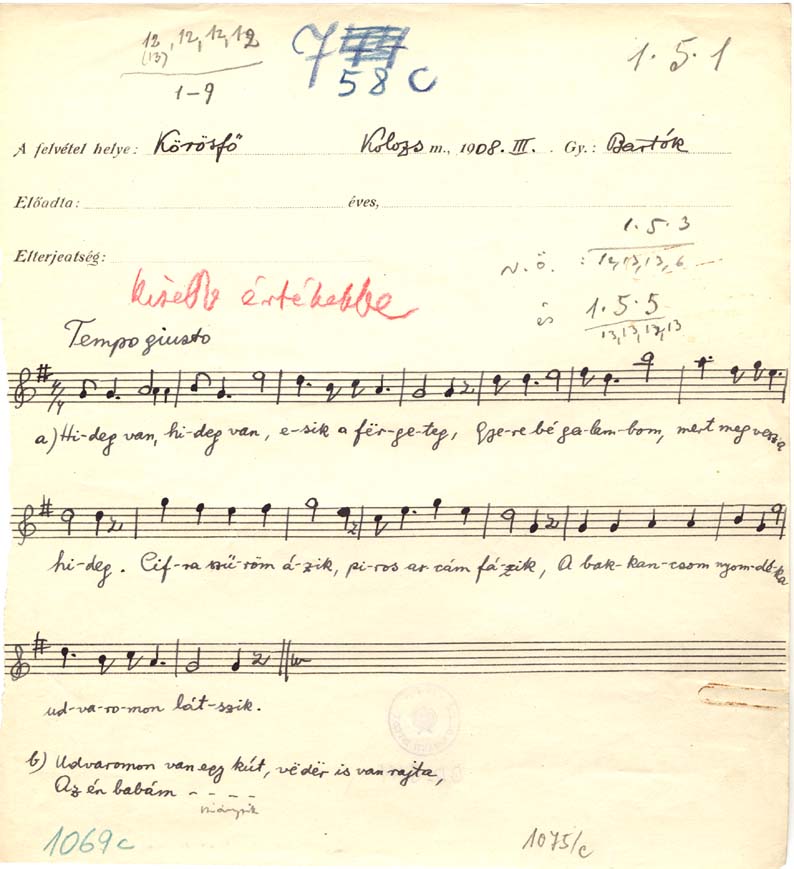 12, 12, 12, 12
(13)
1–9
7
58 C
1·5·1
A felvétel helye: Körösfő Kolozs m., 1908. III. Gy.: Bartók
Előadta: éves,
1·5·3
Elterjedtség:
12, 13, 13, 6
és 1·5·5
13, 13, 13, 13
kisebb értékekbe
Tempo giusto
a) Hi-deg van, hi-deg van, e-sik a fër-ge-teg, Gye-re bé ga-lam-bom, mert meg vesz a
hi-deg. Cif-ra szű-röm á-zik, pi-ros ar-cám fá-zik, A bak-kan-csom nyom-dé-ka
ud-va-ro-mon lát-szik.
b) Udvaromon van egy kút, vëdër is van rajta,
Az én babám – – – –
hiányzik
1069c
1075/c